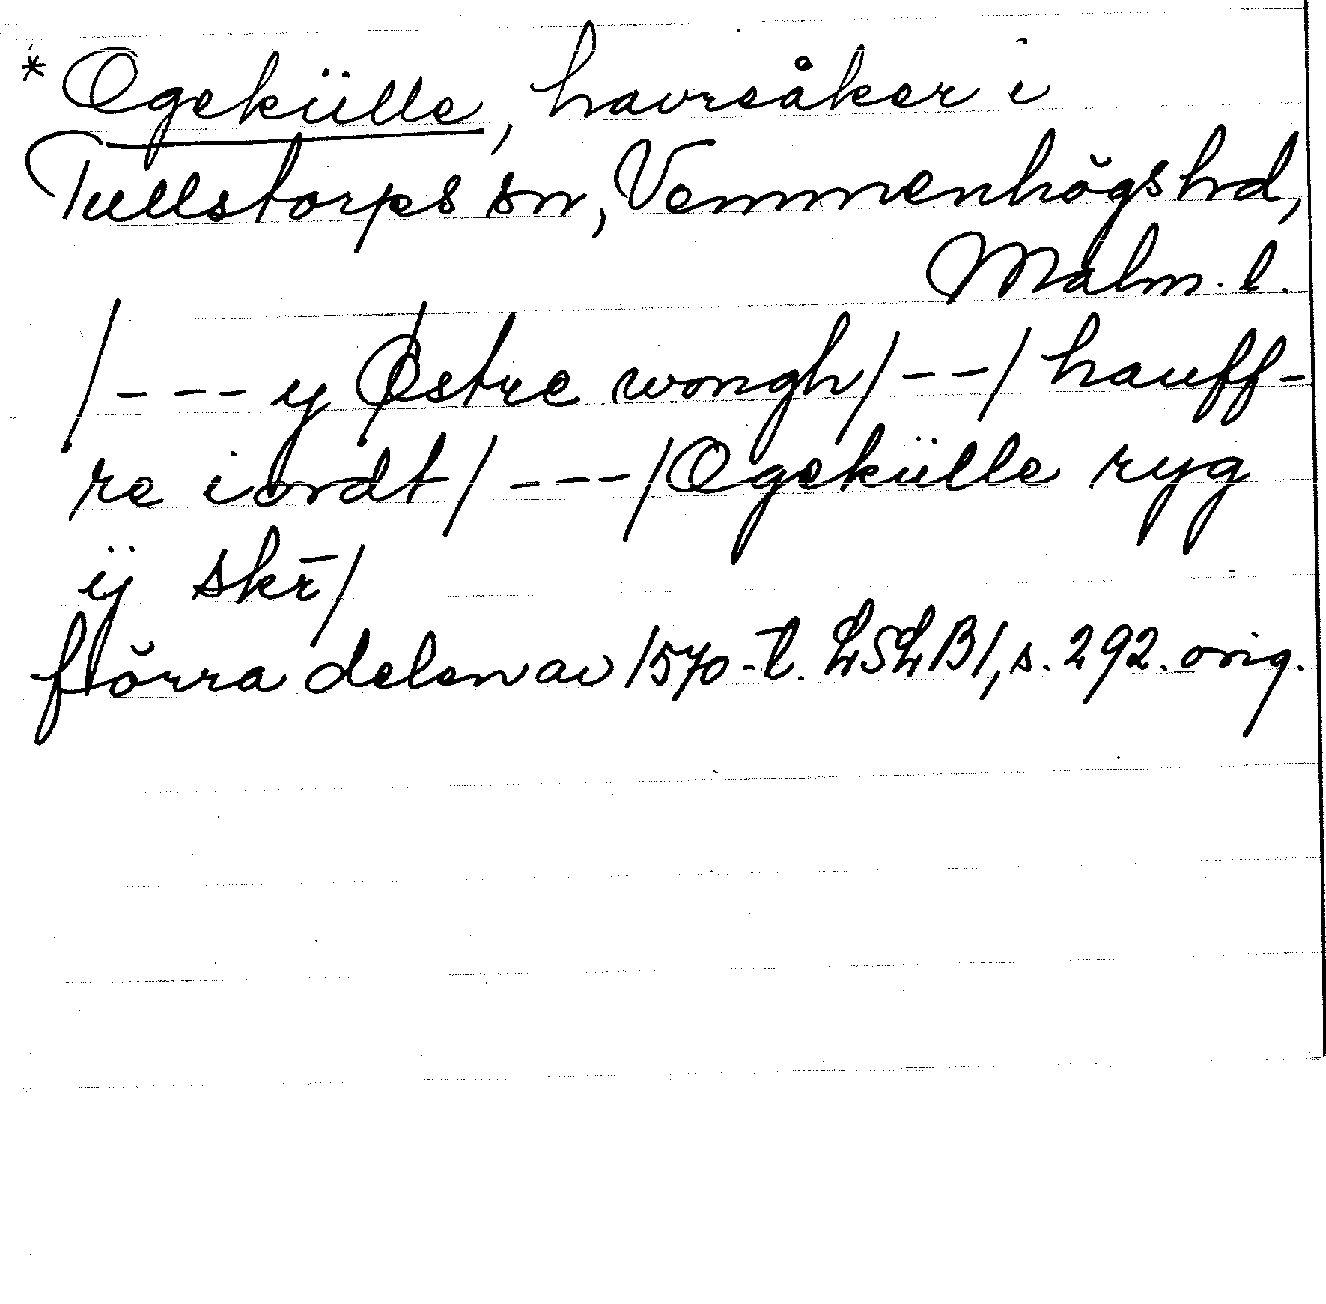 * Ogekülle, havreåker i
Tullstorps sn, Vemmenhögs hd,
Malm. l.
/--- y Østre wongh/--/hauff-
re iordt/---/Ogekülle ryg
ÿ skr̄/
förra delen av 1570-t. LSLB1, s. 292. orig.